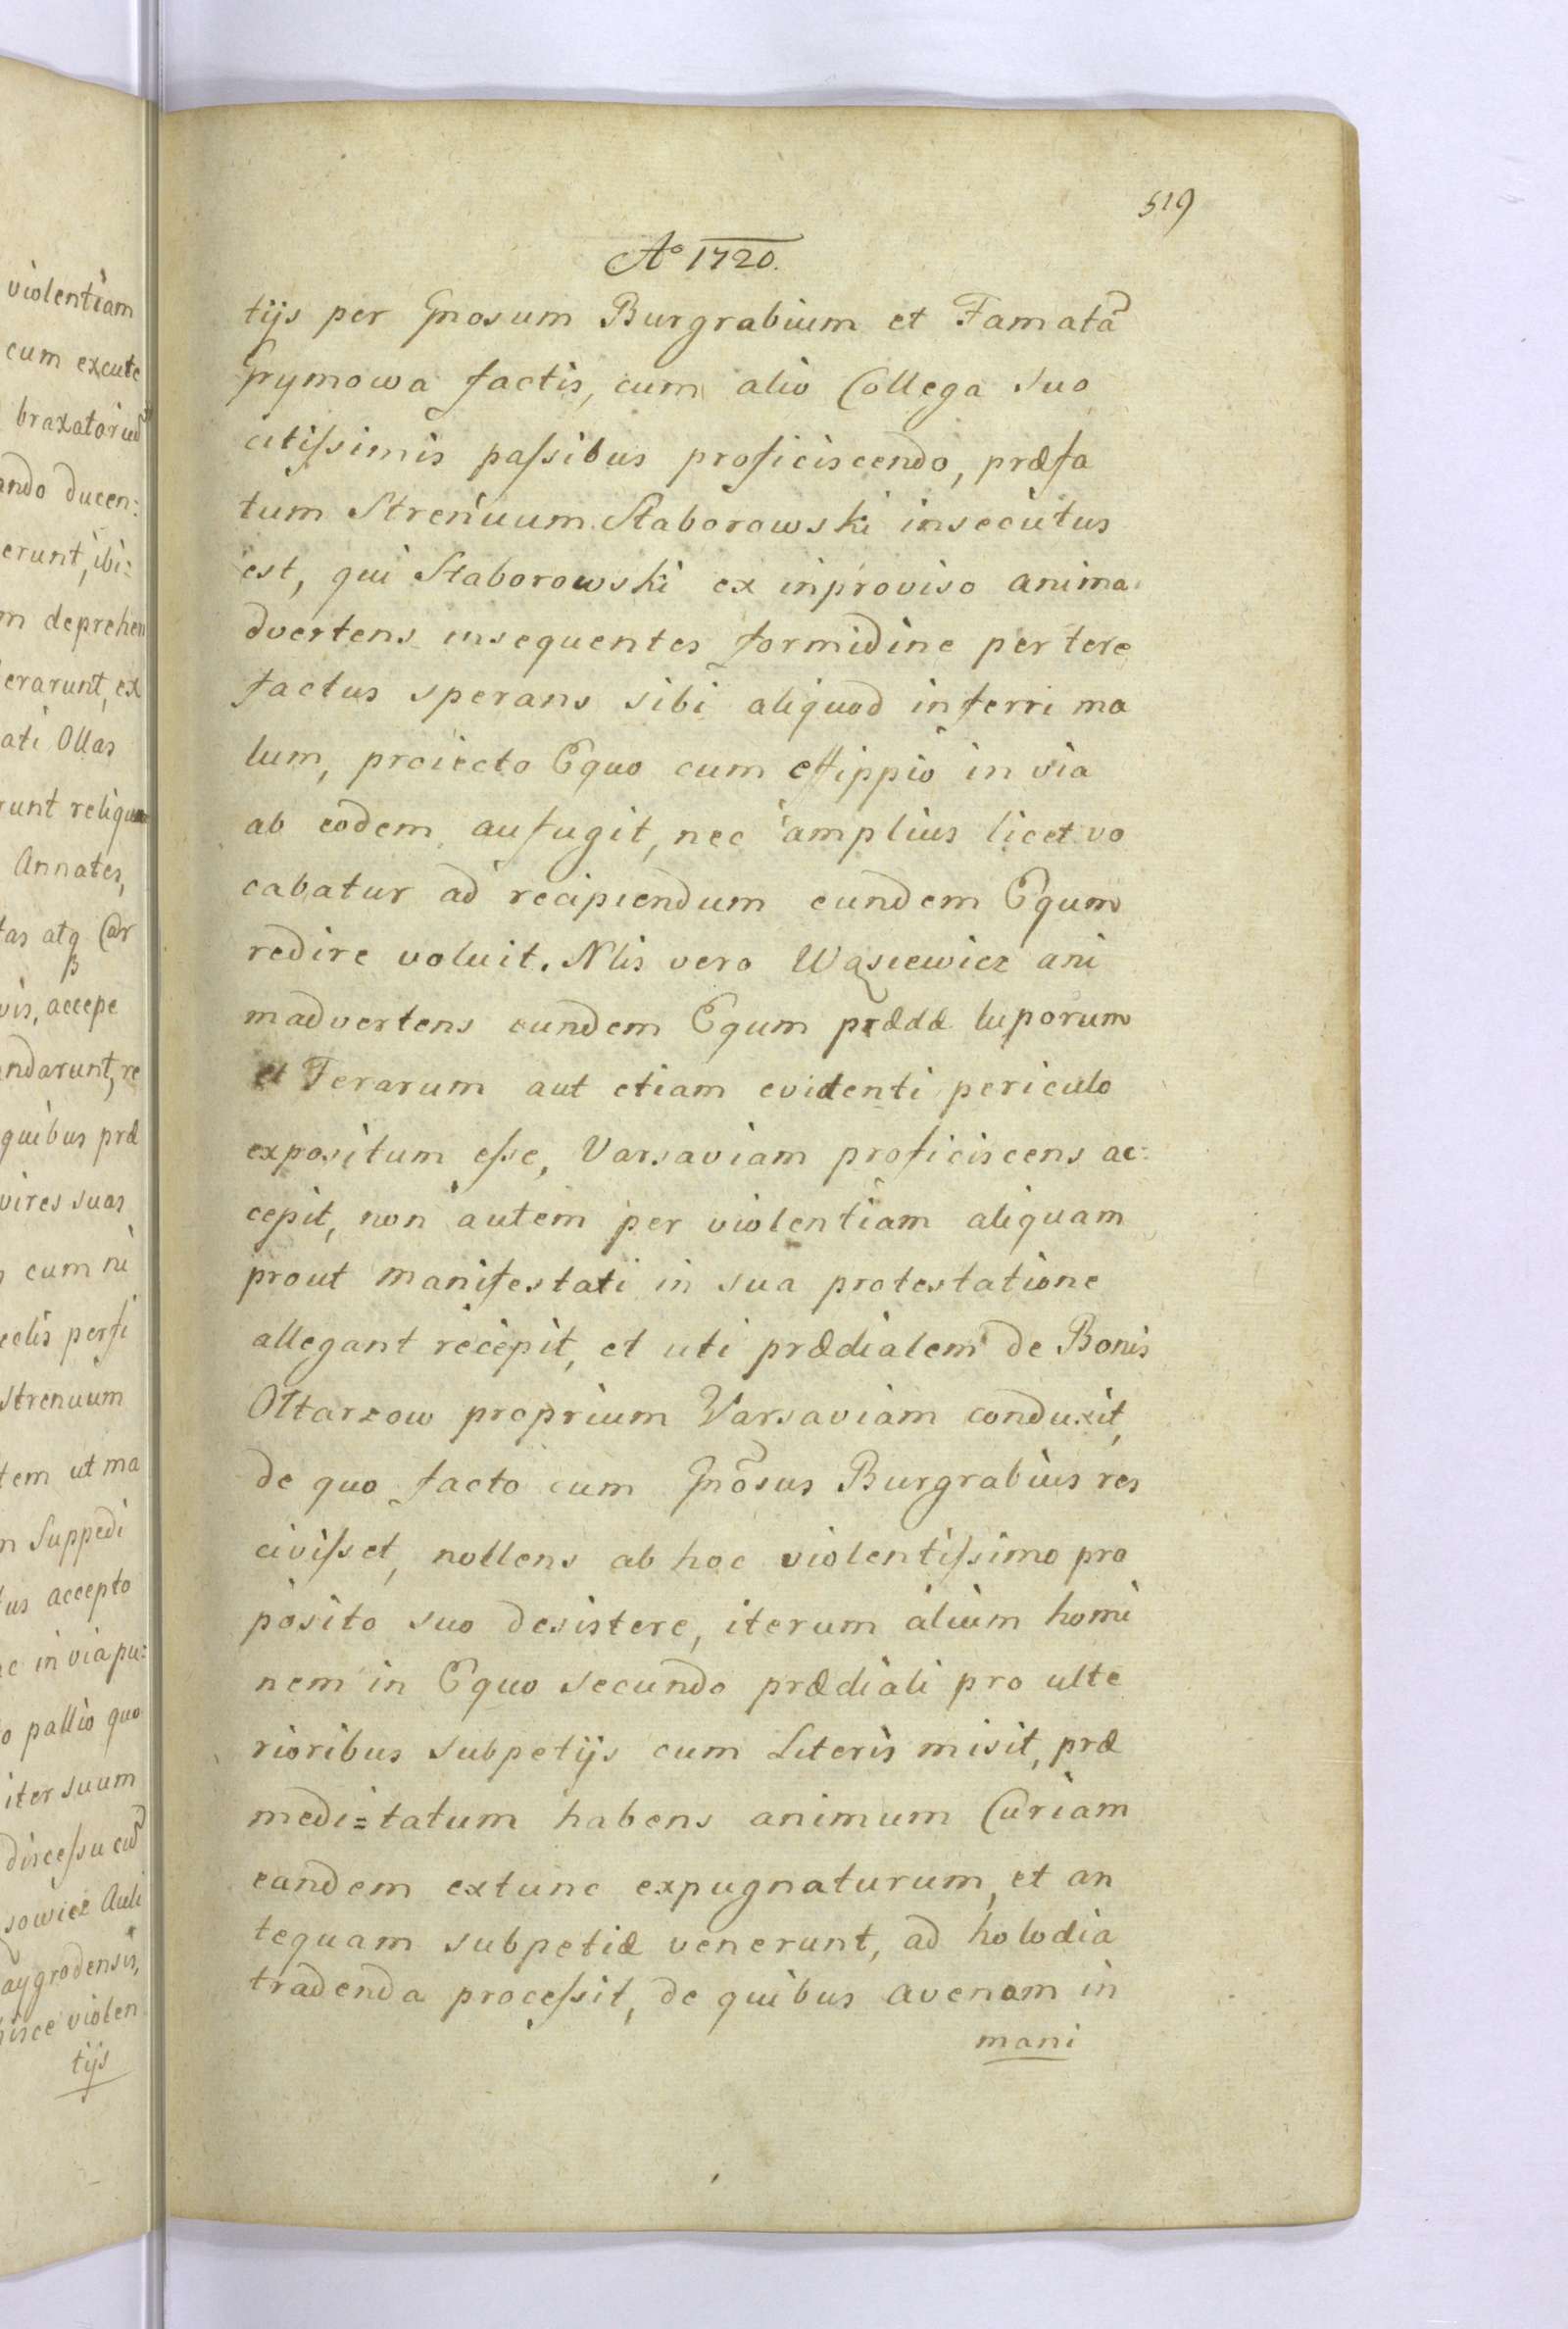 violentiam
cum excute
braxatoriu
ando ducen:
erunt, ibi:
m deprehen
erarunt, ex
ati Ollas
runt reliqu
Annates,
tas atq Car
vis, accepe
ndarunt, re
quibus præ
vires suas
cum ni
eclis perfi
Strenuum
tem ut ma
n Suppedi
tus accepto
c in via pu:
o pallio quo
iter suum
discessu
sowicz Auli
aygrodensis,
hisce violen
tijs
519
Aº 1720.
tijs per Gnosum Burgrabium et Famatã
Grymowa factis, cum alio Collega suo
citissimis passibus proficiscendo, præfa
tum Strenuum Staborowski insecutus
est, qui Staborowski ex inproviso anima
dvertens insequentes formidine per tere
factus sperans sibi aliquod inferri ma
lum, proiecto Equo cum effippio in via
ab eodem aufugit, nec amplius licet vo
cabatur ad recipiendum eundem Equm
redire voluit. Nlis vero Wąsiewicz ani
madvertens eundem Equm prædæ luporum
et Ferarum aut etiam evidenti periculo
expositum esse, Varsaviam proficiscens ac:
cepit, non autem per violentiam aliquam
prout manifestati in sua protestatione
allegant recepit, et uti prædialem de Bonis
Ołtarzow proprium Varsaviam conduxit,
de quo facto cum Gnõsus Burgrabius res
civisset, nollens ab hoc violentissimo pro
posito suo desistere, iterum alium homi
nem in Equo secundo prædiali pro ulte
rioribus subpetijs cum Literis misit, præ
medi=tatum habens animum Curiam
eandem extunc expugnaturum, et an
tequam subpetiæ venerunt, ad holodia
tradenda processit, de quibus avenam in
mani